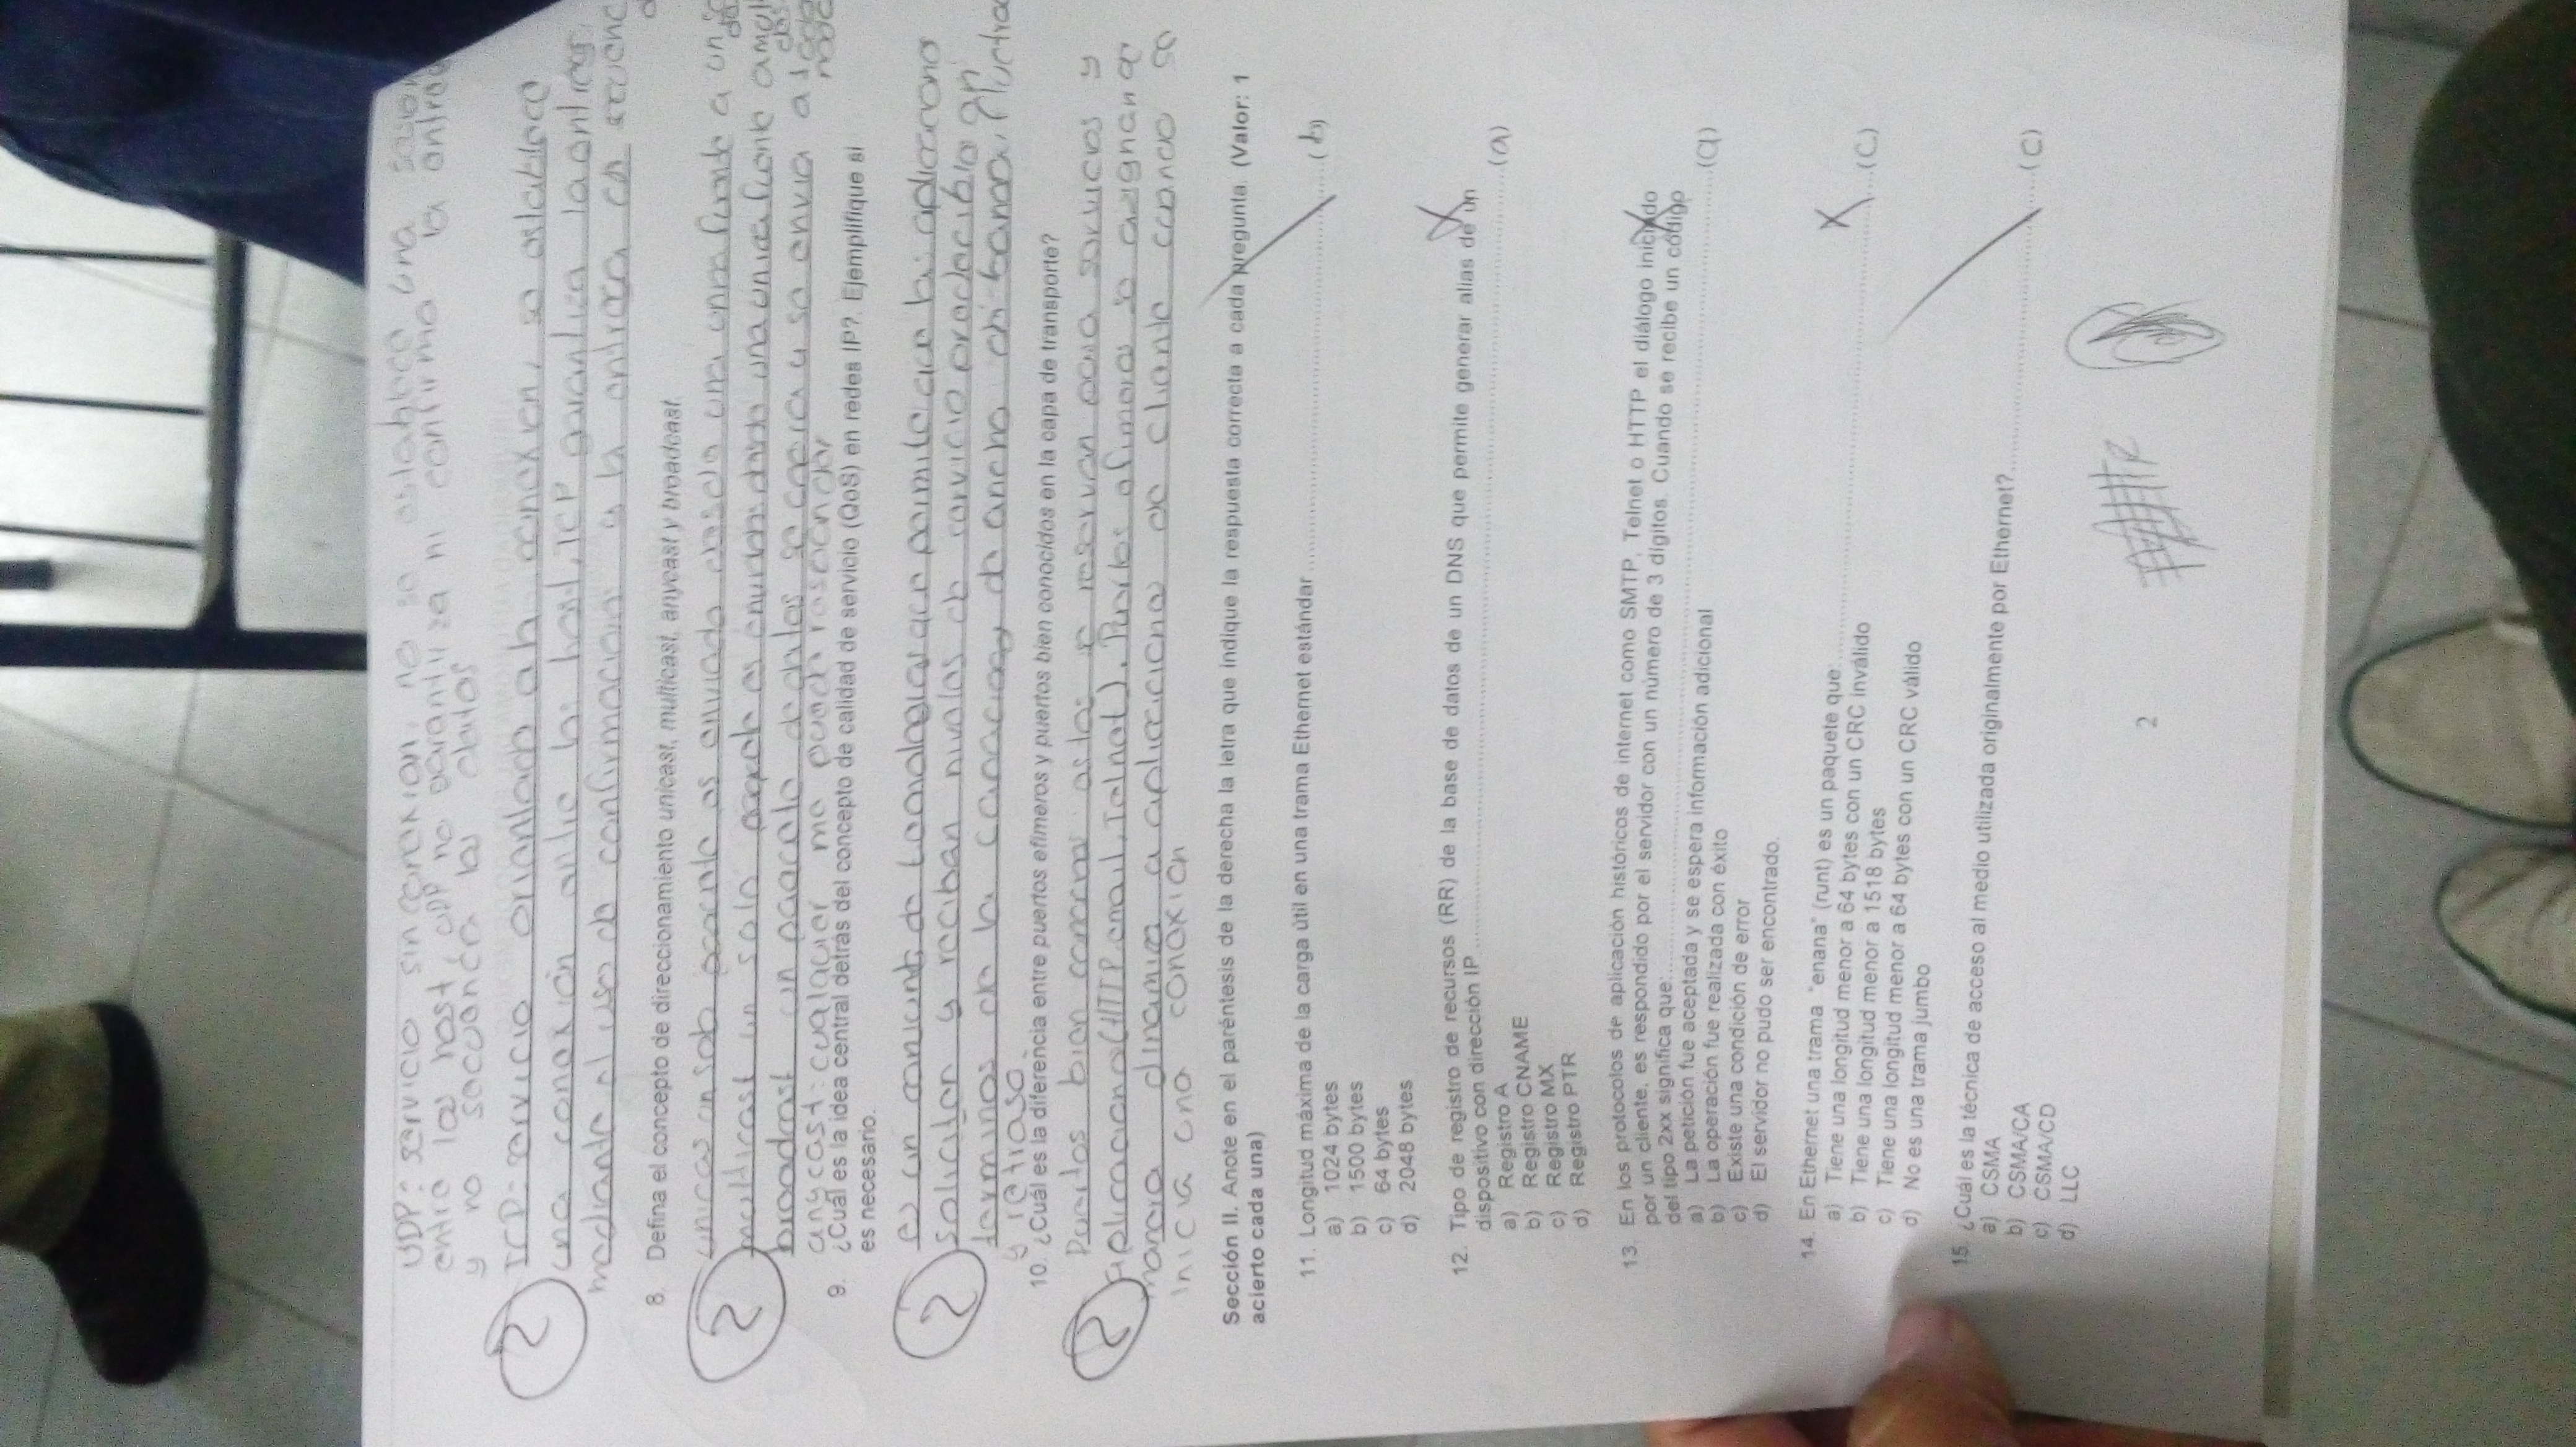 UDP: servicio sin conexion, no se establece una sesion
entre los host, UDP no garantiza ni confirma la entrega
y no secuencia los datos
2
TCP: servicio orientado a la conexion, se establece
una conexión entre los host, TCP garantiza la entrega
mediante el uso de confirmaciones y la entrega en
8. Defina el concepto de direccionamiento unicast, multicast, anycast y broadcast.
2
un solo paquete es enviado desde una unica fuente a un
multicast un solo paquete es enviado desde una unica fuente a
broadcast un paquete de datos se copia y se envia a
anycast: cualquier me puede responder
9. ¿Cuál es la idea central detrás del concepto de calidad de servicio (QoS) en redes IP?. Ejemplifique si
es necesario.
2
es un conjunto de tecnologias que permite que las aplicaciones
soliciten y reciban nivales de servicio predecible en
terminos de la capacidad de ancho de banda,
y retraso.
10. ¿Cuál es la diferencia entre puertos efímeros y puertos bien conocidos en la capa de transporte?
2
Puertos bien estos se reservan para servicios y
aplicaciones (HTTP, email, Telnet). Puertos efimeros se asignan de
manera dinamica a aplicaciones de cliente cuando se
inicia una conexion
Sección II. Anote en el paréntesis de la derecha la letra que indique la respuesta correcta a cada pregunta. (Valor: 1
acierto cada una)
11. Longitud máxima de la carga útil en una trama Ethernet estándar ........ (b)
a) 1024 bytes
b) 1500 bytes
c) 64 bytes
d) 2048 bytes
12. Tipo de registro de recursos (RR) de la base de datos de un DNS que permite generar alias de un
dispositivo con dirección IP ........ (a)
a) Registro A
b) Registro CNAME
c) Registro MX
d) Registro PTR
13. En los protocolos de aplicación históricos de internet como SMTP, Telnet o HTTP el diálogo iniciado
por un cliente, es respondido por el servidor con un número de 3 dígitos. Cuando se recibe un código
del tipo 2xx significa que: ........ (a)
a) La petición fue aceptada y se espera información adicional
b) La operación fue realizada con éxito
c) Existe una condición de error
d) El servidor no pudo ser encontrado.
14. En Ethernet una trama "enana" (runt) es un paquete que: ........ (c)
a) Tiene una longitud menor a 64 bytes con un CRC inválido
b) Tiene una longitud menor a 1518 bytes
c) Tiene una longitud menor a 64 bytes con un CRC válido
d) No es una trama jumbo
15. ¿Cuál es la técnica de acceso al medio utilizada originalmente por Ethernet? ........ (c)
a) CSMA
b) CSMA/CA
c) CSMA/CD
d) LLC
2